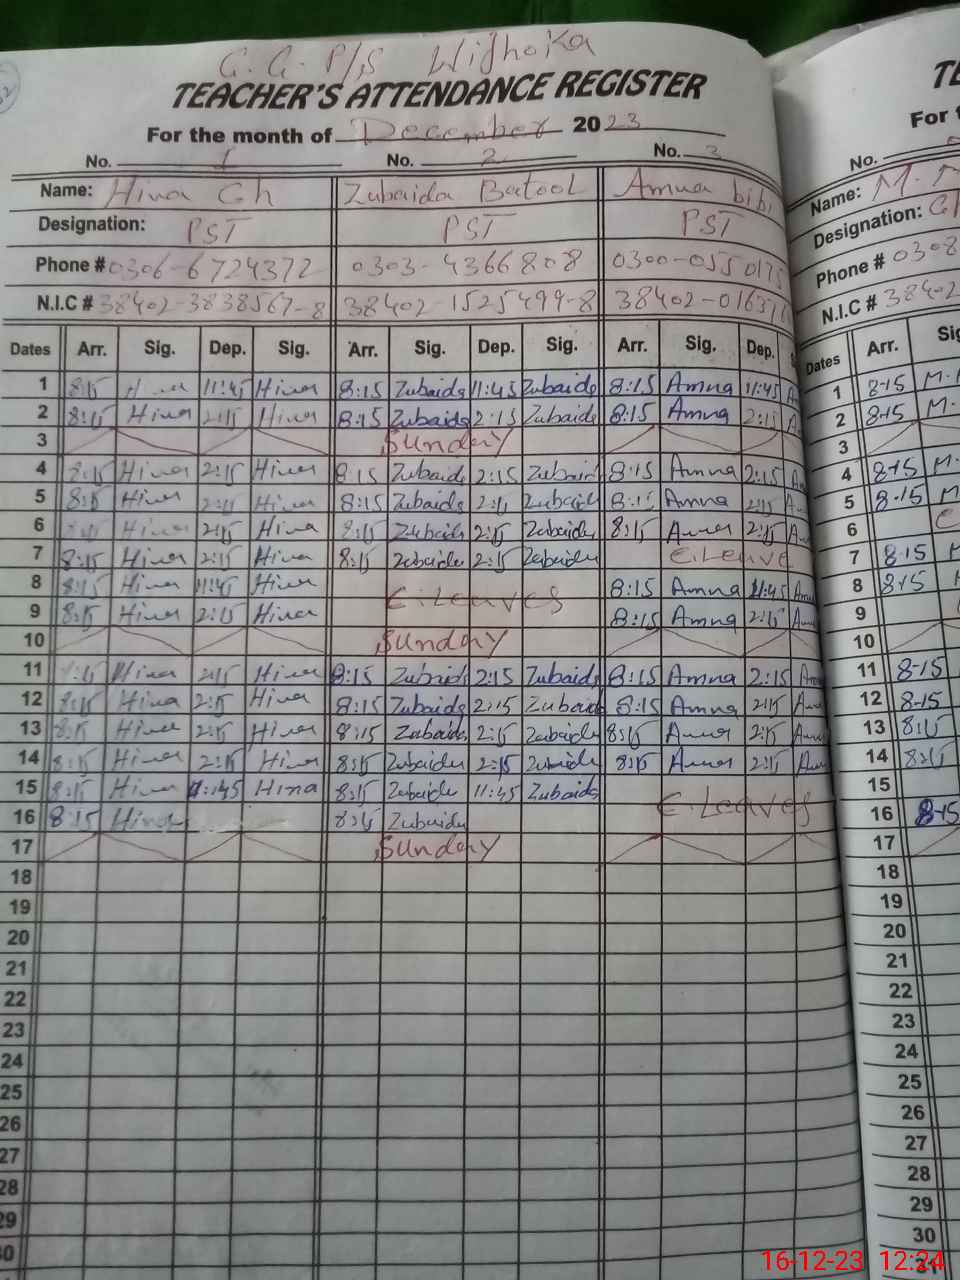 G. G. P/S Wijhoka
TEACHER'S ATTENDANCE REGISTER
For the month of December 2023
No. 1 No. 2 No. 3
Name: Hina Gh Zubaida Batool Amna bibi
Designation: PST PST PST
Phone # 0306-6724372 0303-4366808 0300-0550175
N.I.C # 38402-3838567-8 38402-1525499-8 38402-01631
Dates Arr. Sig. Dep. Sig. Arr. Sig. Dep. Sig. Arr. Sig. Dep. S
1 8:15 Hina 11:45 Hina 8:15 Zubaida 11:45 Zubaida 8:15 Amna 11:45 A
2 8:15 Hina 2:15 Hina 8:15 Zubaida 2:15 Zubaida 8:15 Amna 2:15 A
3 Sunday
4 8:15 Hina 2:15 Hina 8:15 Zubaida 2:15 Zubaida 8:15 Amna 2:15 Am
5 8:15 Hina 2:15 Hina 8:15 Zubaida 2:15 Zubaida 8:15 Amna 2:15 A
6 8:15 Hina 2:15 Hina 8:15 Zubaida 2:15 Zubaida 8:15 Amna 2:15 Am
7 8:15 Hina 2:15 Hina 8:15 Zubaida 2:15 Zubaida E.Leave
8 8:15 Hina 11:45 Hina E.Leaves 8:15 Amna 11:45 Am
9 8:15 Hina 2:15 Hina 8:15 Amna 2:15 Am
10 Sunday
11 8:15 Hina 2:15 Hina 8:15 Zubaida 2:15 Zubaida 8:15 Amna 2:15 Am
12 8:15 Hina 2:15 Hina 8:15 Zubaida 2:15 Zubaida 8:15 Amna 2:15 Am
13 8:15 Hina 2:15 Hina 8:15 Zubaida 2:15 Zubaida 8:15 Amna 2:15 Am
14 8:15 Hina 2:15 Hina 8:15 Zubaida 2:15 Zubaida 8:15 Amna 2:15 Am
15 8:15 Hina 11:45 Hina 8:15 Zubaida 11:45 Zubaida E.Leaves
16 8:15 Hina 8:15 Zubaida
17 Sunday
18
19
20
21
22
23
24
25
26
27
28
29
30
TE
For t
No.
Name: M.
Designation:
Phone # 0308
N.I.C # 38402
Dates Arr. Sig
1 8-15 M.
2 8-15 M.
3
4 8-15 M.
5 8-15 M
6
7 8-15
8 8-15
9
10
11 8-15
12 8-15
13 8:15
14 8:15
15
16 8-15
17
18
19
20
21
22
23
24
25
26
27
28
29
30
31
16-12-23 12:24